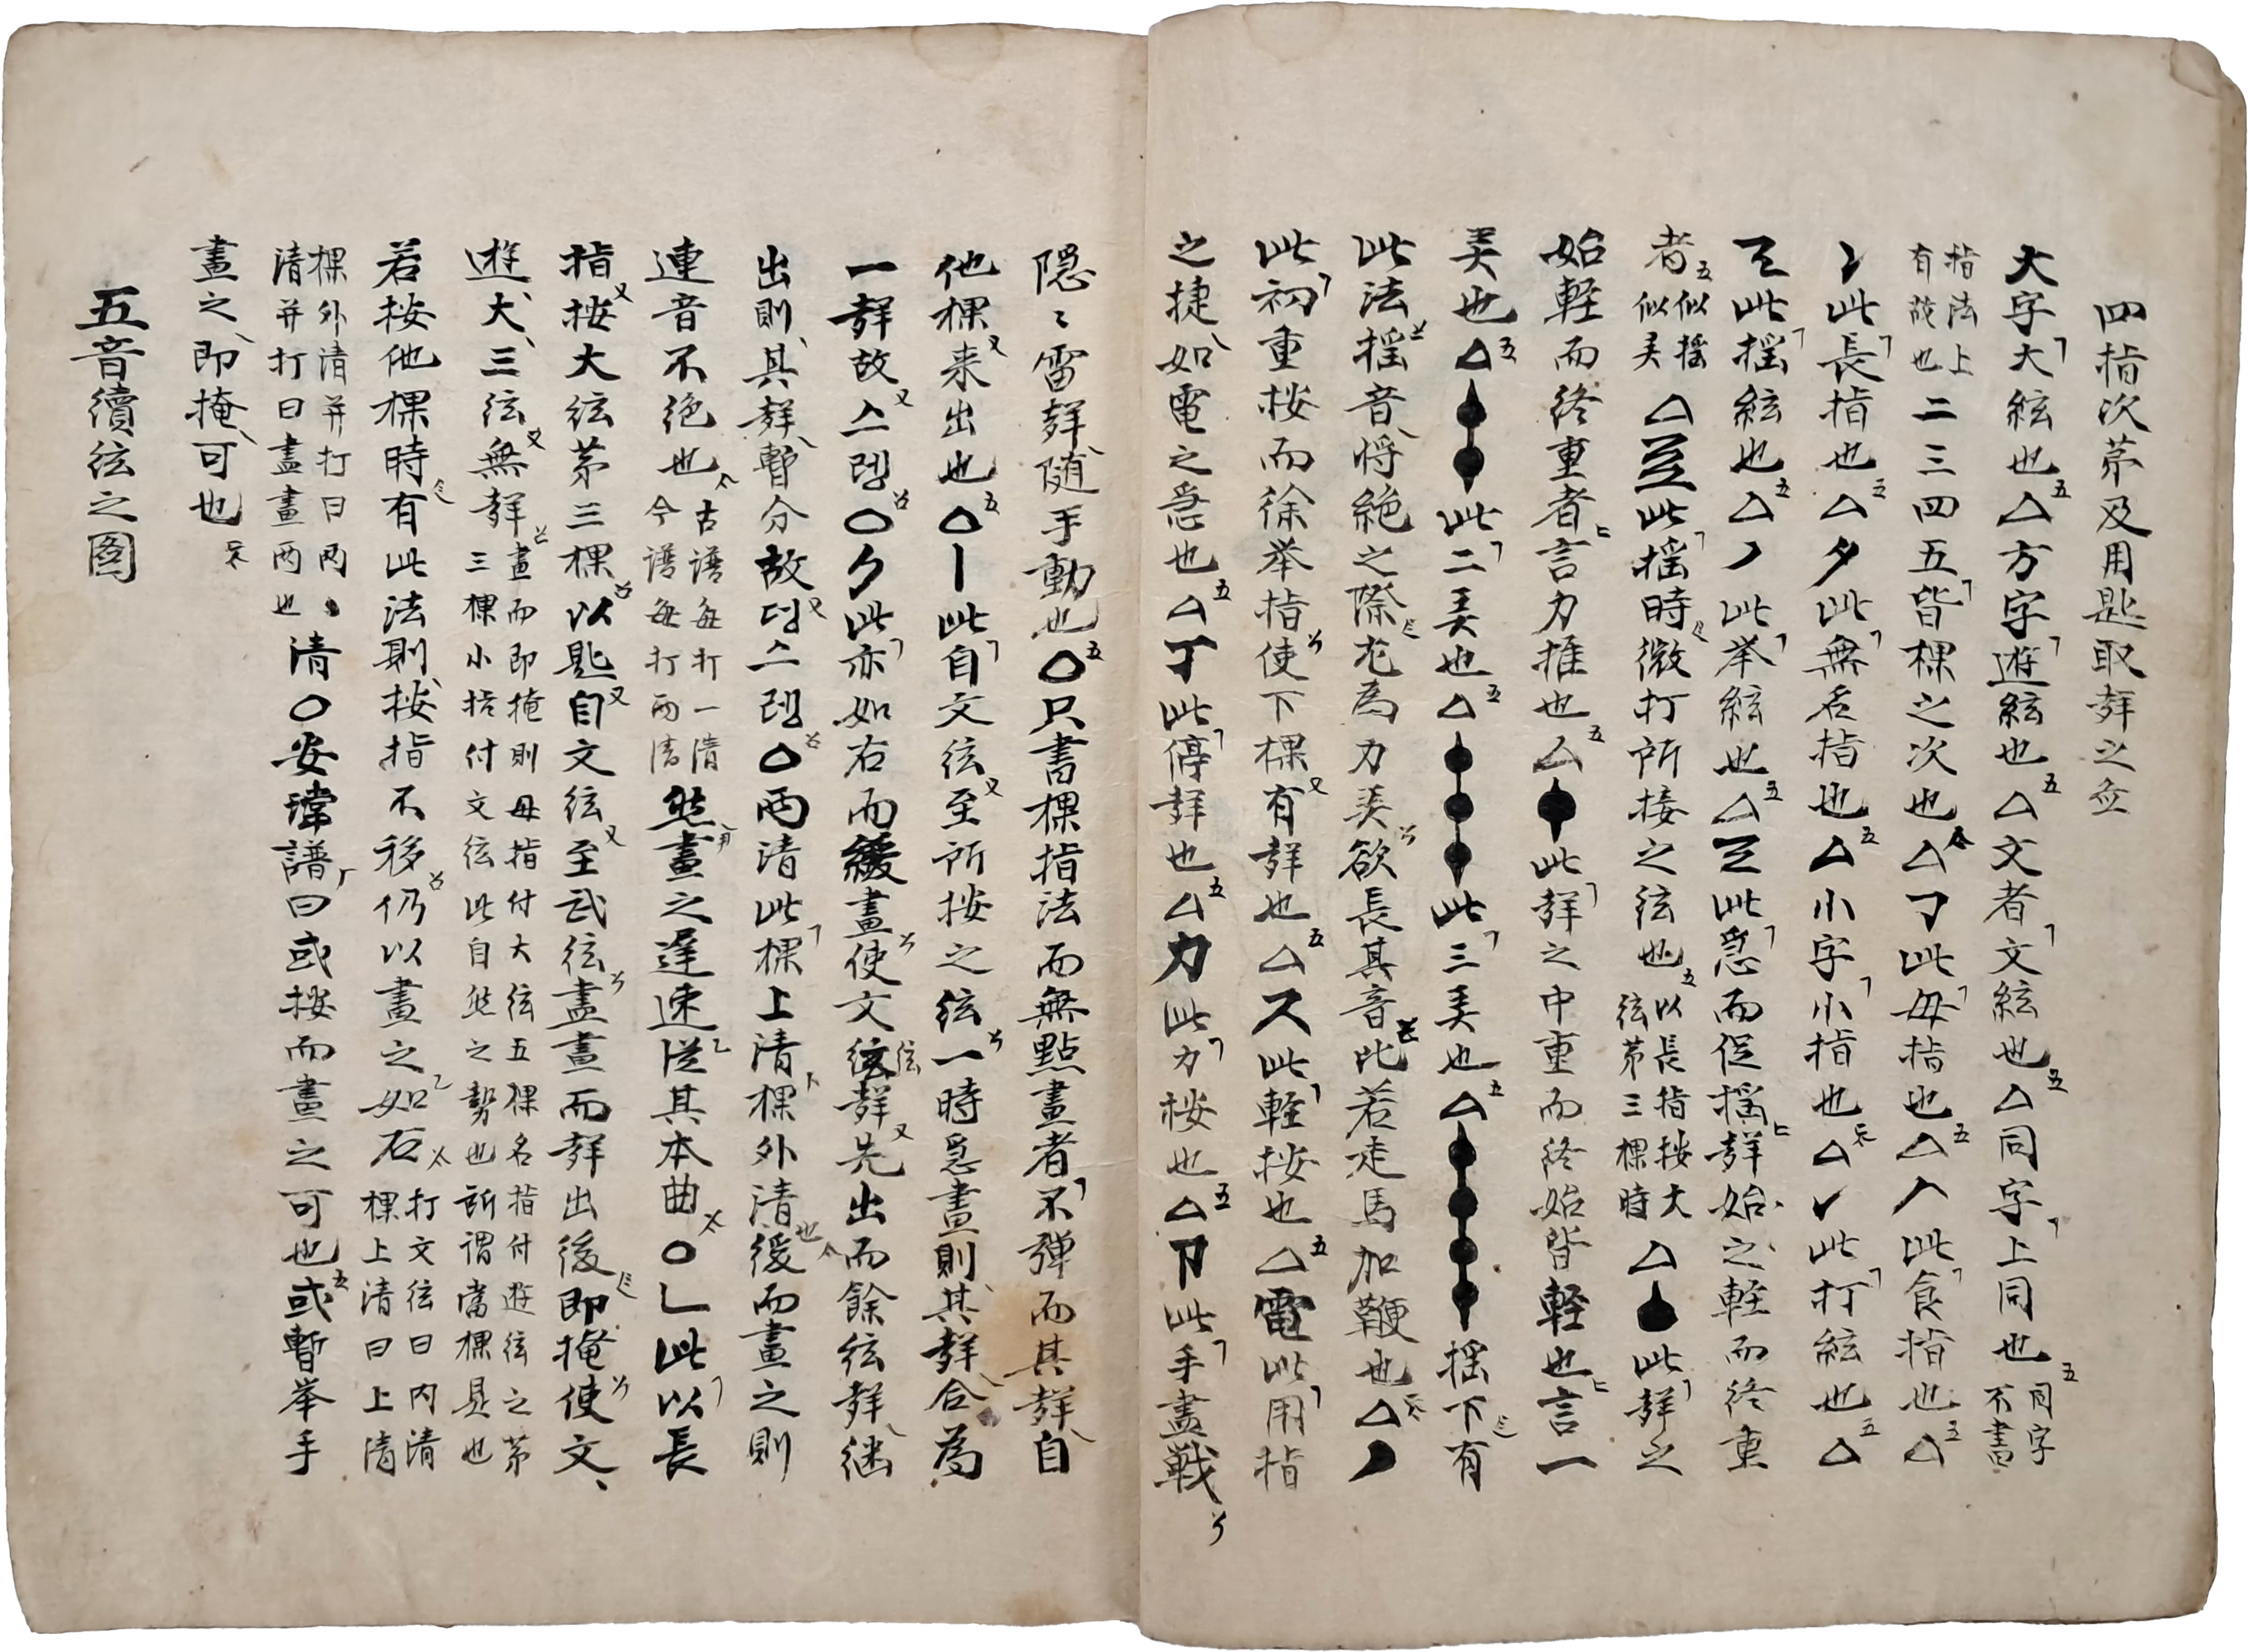 四指次第及用匙取聲之盆
大字大絃也△方字遊絃也△文者文絃也△同字上同也 同字不書
指法上有說也 二三四五皆棵之次也△㇆此母指也△ㅅ此食指也△
〻此長指也△夕此無名指也△小字小指也△✓此打絃也△
此搖絃也△ノ此举絃也△此急而促搖聲始之輕而終重
者 似搖似㕛 △此搖時微打所接之弦也 以長指按大弦第三棵時 △此聲之
始輕而終重者言力推也△此聲之中重而終始皆輕也言一
㕛也△此二㕛也△此三㕛也△搖下有
此法搖音將絶之際尤為力㕛欲長其音比若走馬加鞭也△ノ
此初重按而徐举指使下棵有聲也△ス此輕按也△電此用指
之捷如電之急也△丁此停聲也△力此力按也△此手盡戰
隱〻雷聲随手動也○只書棵指法而無點畫者不彈而其聲自
他棵来出也○丨此自文弦至所按之弦一時急畫則其聲合為
一聲故스렝○ク此亦如右而緩畫使文弦聲先出而餘弦聲継
出則其聲暫分故더스렝○兩清此棵上清棵外清也緩而畫之則
連音不絶也 古譜每打一清今譜每打兩清 然畫之遅速従其本曲○乚此以長
指按大弦第三棵以匙自文弦至武弦盡畫而聲出後即掩使文
遊大三弦無聲 畫而即掩則母指付大弦五棵名指付遊弦之第三棵小指付文弦此自然之勢也所謂當棵是也
若按他棵時有此法則按指不移仍以畫之如右 打文弦曰內清棵上清曰上清
棵外清并打曰兩清并打曰盡畫兩也 清○安瑋譜曰或按而畫之可也或暫举手
畫之即掩可也
五音續弦之圖